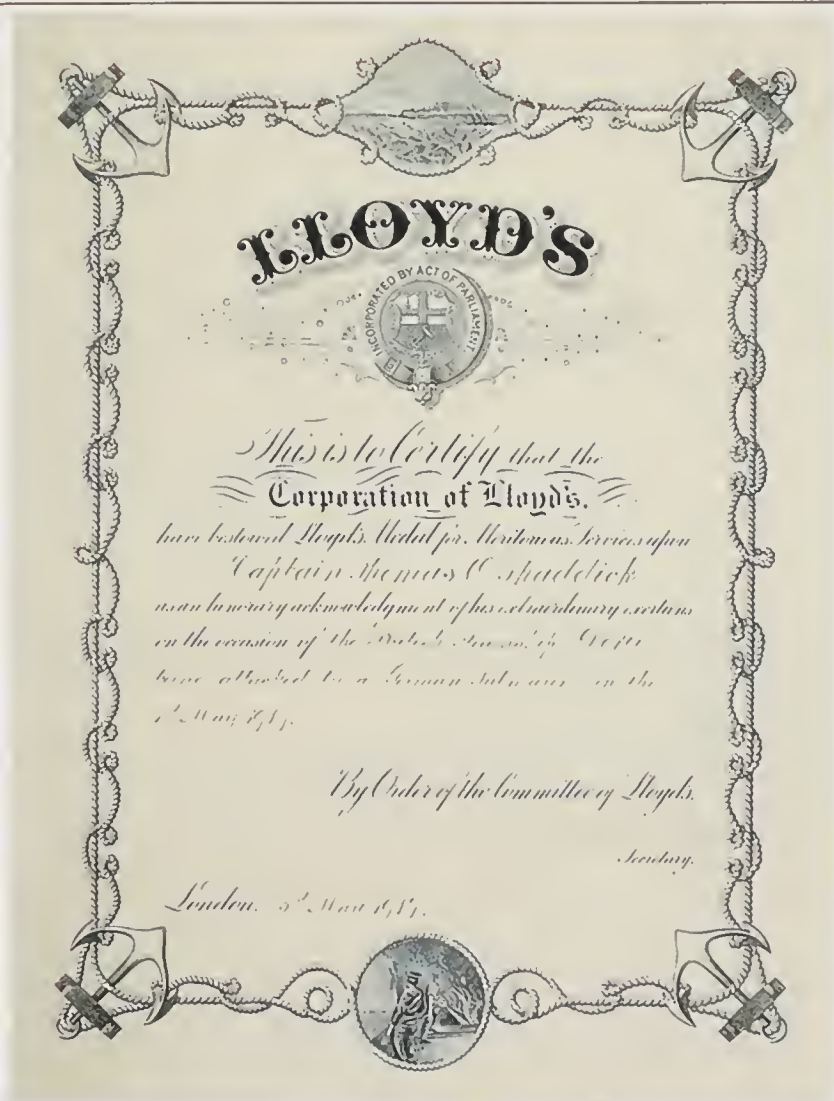 LLOYD'S
INCORPORATED BY ACT OF PARLIAMENT
This is to Certify that the
Corporation of Lloyd's.
have bestowed Lloyd's Medal for Meritorious Services upon
Captain Thomas C Shaddick
as an honorary acknowledgment of his extraordinary exertions
on the occasion of the British
being attacked by a German Submarine on the
May
By Order of the Committee of Lloyd's.
Secretary.
London.